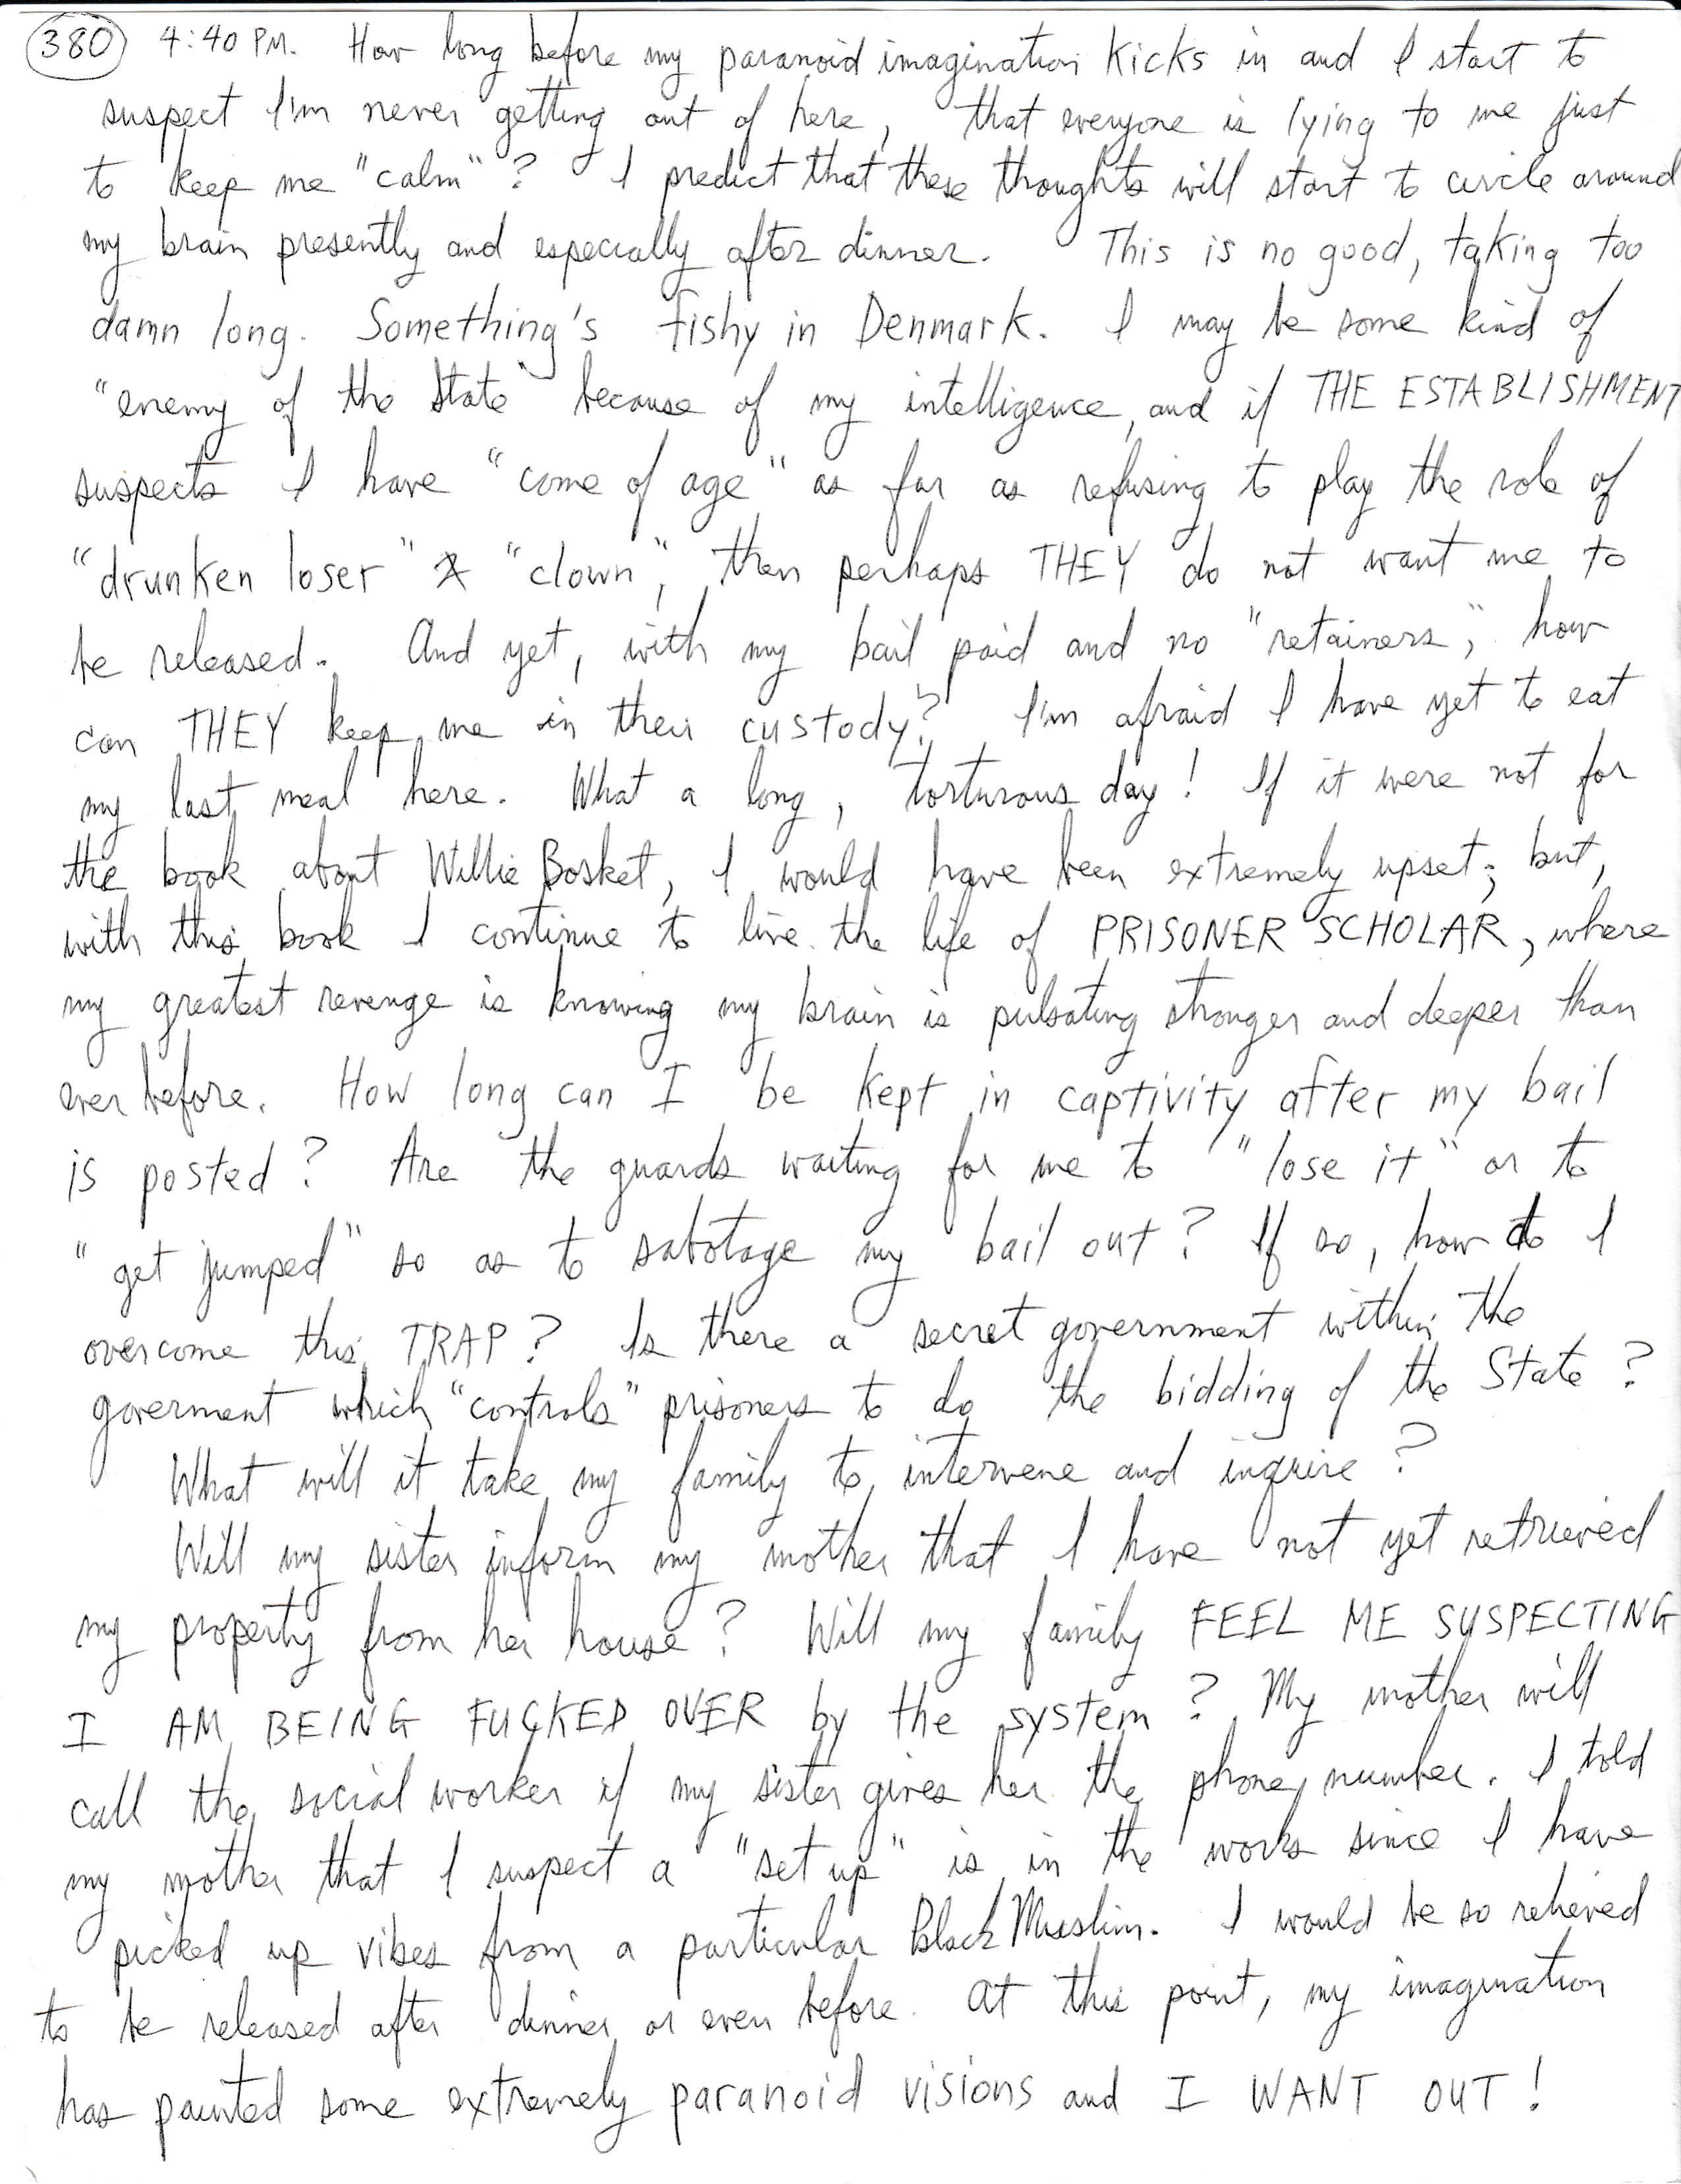 380 4:40 PM. How long before my paranoid imagination kicks in and I start to
suspect I'm never getting out of here, that everyone is lying to me just
to keep me "calm"? I predict that these thoughts will start to circle around
my brain presently and especially after dinner. This is no good, taking too
damn long. Something's fishy in Denmark. I may be some kind of
"enemy of the State" because of my intelligence, and if THE ESTABLISHMENT
suspects I have "come of age" as far as refusing to play the role of
"drunken loser" & "clown", then perhaps THEY do not want me to
be released. And yet, with my bail paid and no "retainers", how
can THEY keep me in their custody? I'm afraid I have yet to eat
my last meal here. What a long, torturous day! If it were not for
the book about Willie Bosket, I would have been extremely upset; but,
with this book I continue to live the life of PRISONER SCHOLAR, where
my greatest revenge is knowing my brain is pulsating stronger and deeper than
ever before. How long can I be kept in captivity after my bail
is posted? Are the guards waiting for me to "lose it" or to
"get jumped" so as to sabotage my bail out? If so, how do I
overcome this TRAP? Is there a secret government within the
goverment which "controls" prisoners to do the bidding of the State?
What will it take my family to intervene and inquire?
Will my sister inform my mother that I have not yet retrieved
my property from her house? Will my family FEEL ME SUSPECTING
I AM BEING FUCKED OVER by the system? My mother will
call the social worker if my sister gives her the phone number. I told
my mother that I suspect a "set up" is in the works since I have
picked up vibes from a particular Black Muslim. I would be so relieved
to be released after dinner or even before. At this point, my imagination
has painted some extremely paranoid visions and I WANT OUT!